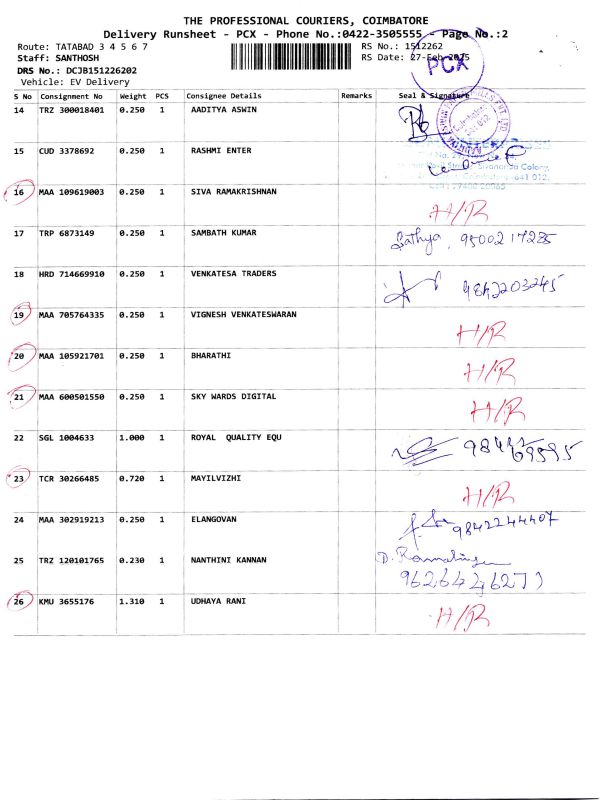 THE PROFESSIONAL COURIERS, COIMBATORE
Delivery Runsheet - PCX - Phone No.:0422-3505555 - Page No.:2
Route: TATABAD 3 4 5 6 7 RS No.: 1512262
Staff: SANTHOSH RS Date: 27-Feb-2025
PCX
DRS No.: DCJB151226202
Vehicle: EV Delivery
S No Consignment No Weight PCS Consignee Details Remarks Seal & Signature
14 TRZ 300018401 0.250 1 AADITYA ASWIN
15 CUD 3378692 0.250 1 RASHMI ENTER
Sivananda Colony,
Coimbatore -641 012.
16 MAA 109619003 0.250 1 SIVA RAMAKRISHNAN H/R
17 TRP 6873149 0.250 1 SAMBATH KUMAR Sathya, 9500217285
18 HRD 714669910 0.250 1 VENKATESA TRADERS 9842203245
19 MAA 705764335 0.250 1 VIGNESH VENKATESWARAN H/R
20 MAA 105921701 0.250 1 BHARATHI H/R
21 MAA 600501550 0.250 1 SKY WARDS DIGITAL H/R
22 SGL 1004633 1.000 1 ROYAL QUALITY EQU
23 TCR 30266485 0.720 1 MAYILVIZHI H/R
24 MAA 302919213 0.250 1 ELANGOVAN 9842244407
25 TRZ 120101765 0.230 1 NANTHINI KANNAN D. Ramalingam
9626446271
26 KMU 3655176 1.310 1 UDHAYA RANI H/R